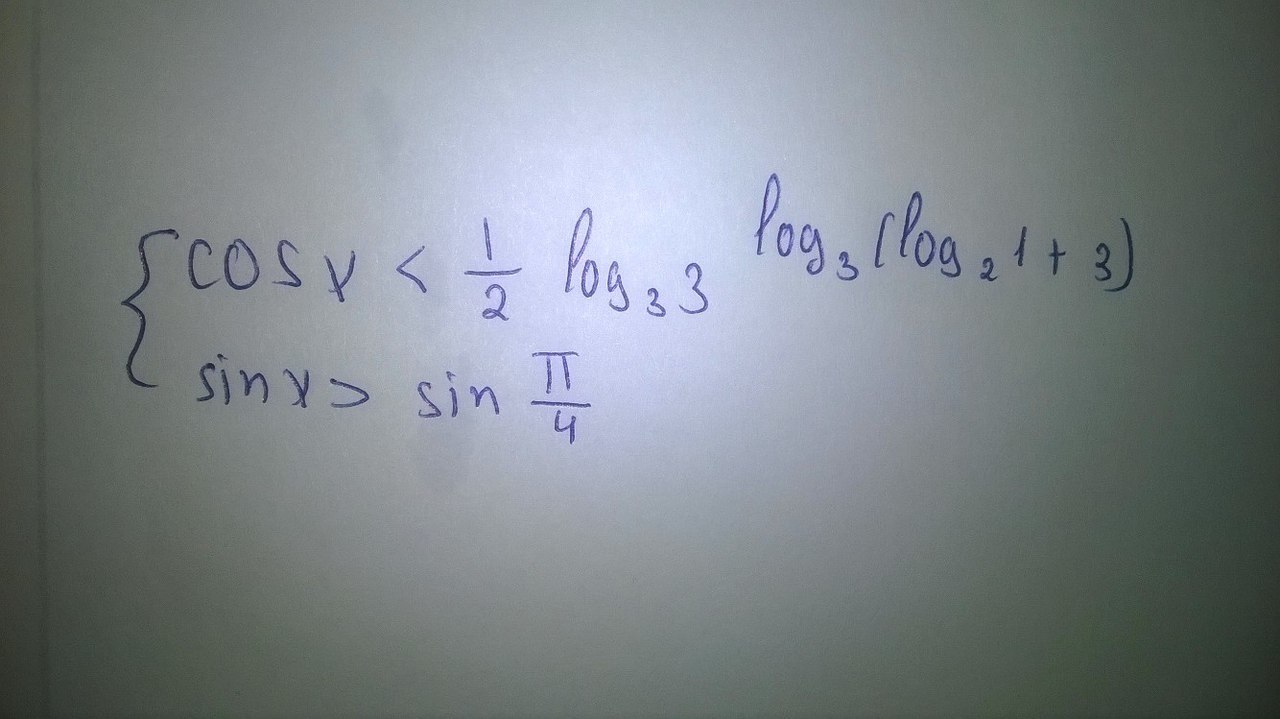 { cos x < 1/2 log₃ 3^(log₃(log₂ 1 + 3))
sin x > sin π/4